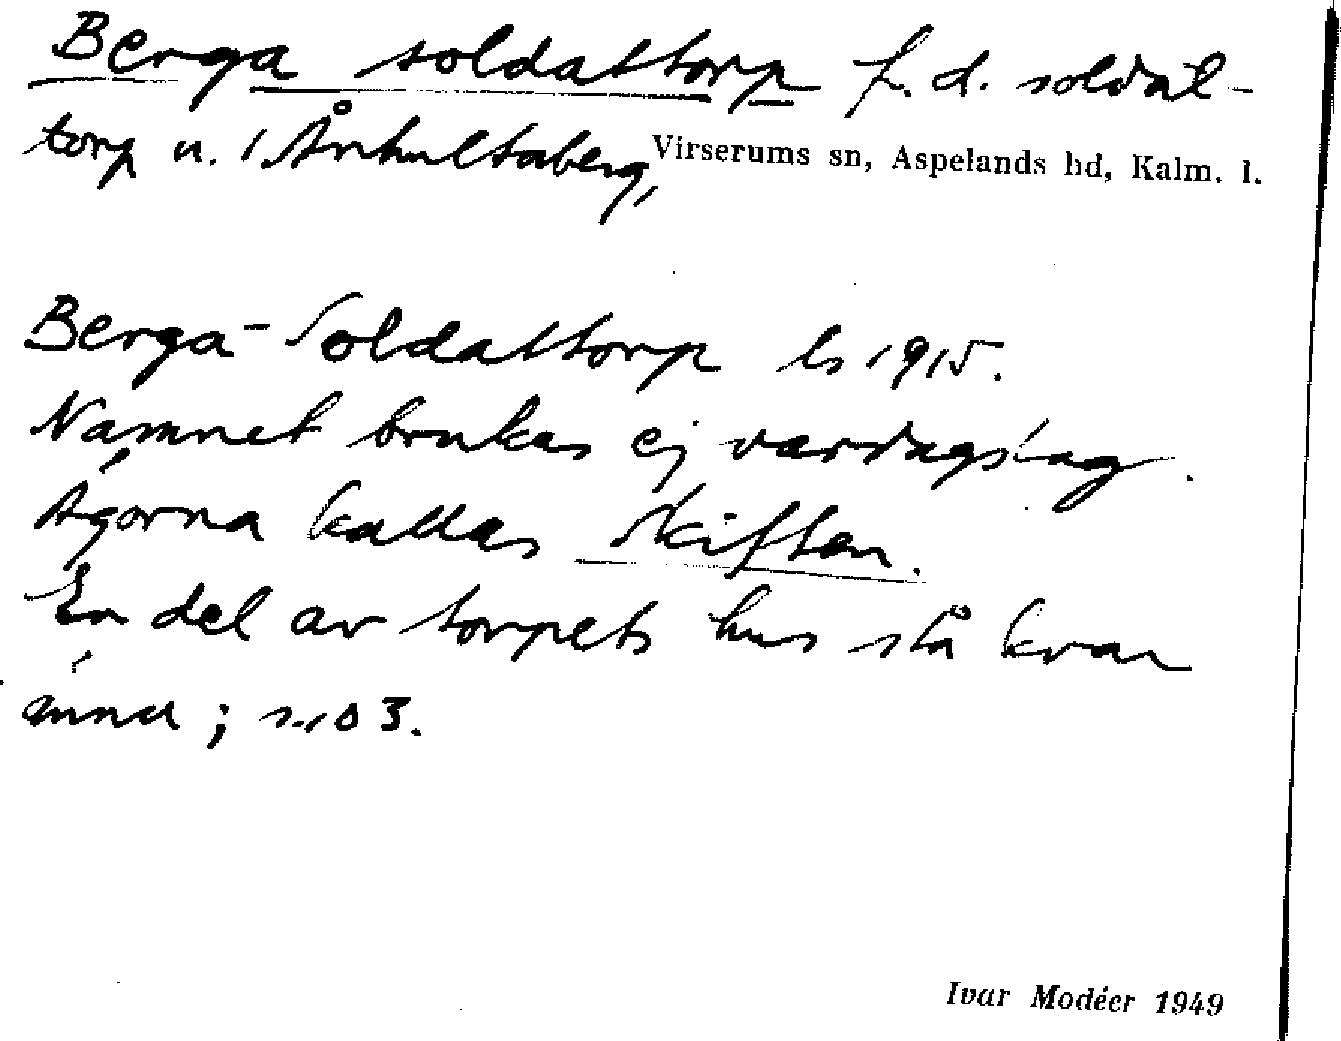 Berga soldattorp f. d. soldat-
torp u. 1 Århultaberg, Virserums sn, Aspelands hd, Kalm. l.
Berga-Soldattorp ls 1915.
Namnet brukas ej vardagslag.
Ägorna kallas Skiften.
En del av torpets hus stå kvar
ännu; n:o 3.
Ivar Modéer 1949